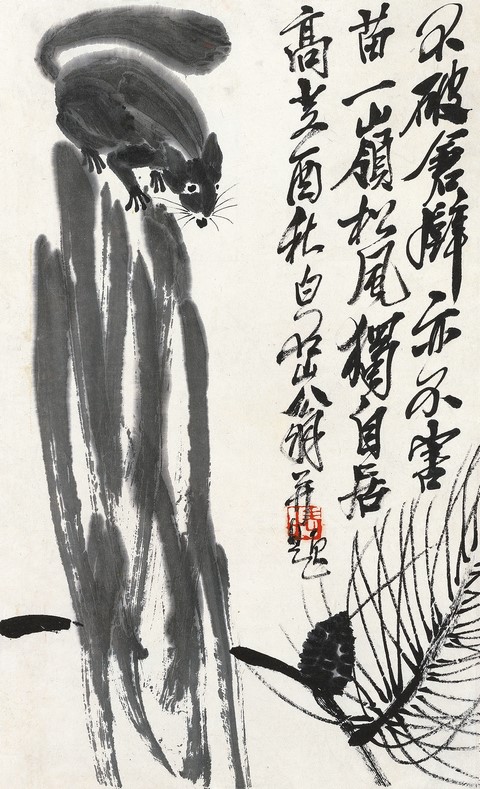 不破倉亦不害
苗一山嶺松風獨自居
高癸酉秋白石山翁并題